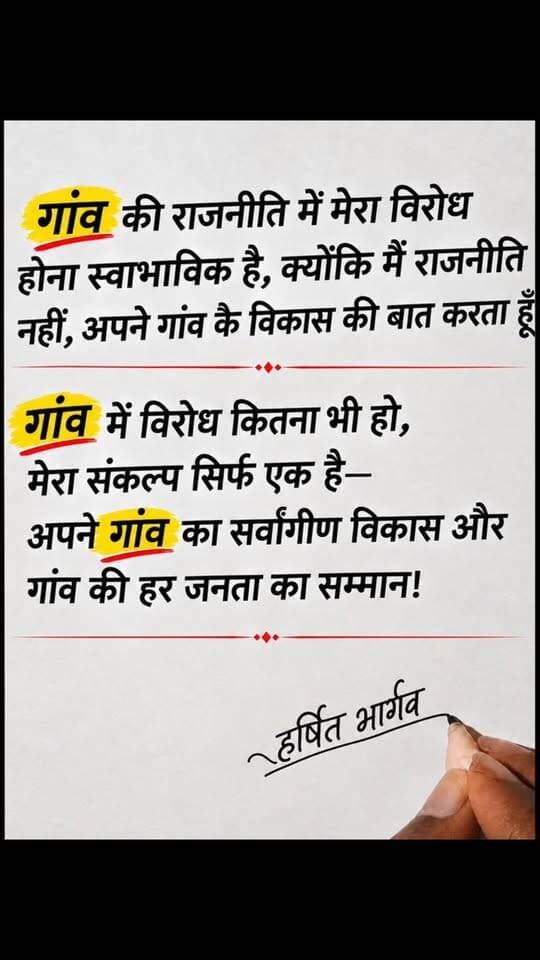 गांव की राजनीति में मेरा विरोध
होना स्वाभाविक है, क्योंकि मैं राजनीति
नहीं, अपने गांव कै विकास की बात करता हूँ
गांव में विरोध कितना भी हो,
मेरा संकल्प सिर्फ एक है—
अपने गांव का सर्वांगीण विकास और
गांव की हर जनता का सम्मान!
हर्षित भार्गव